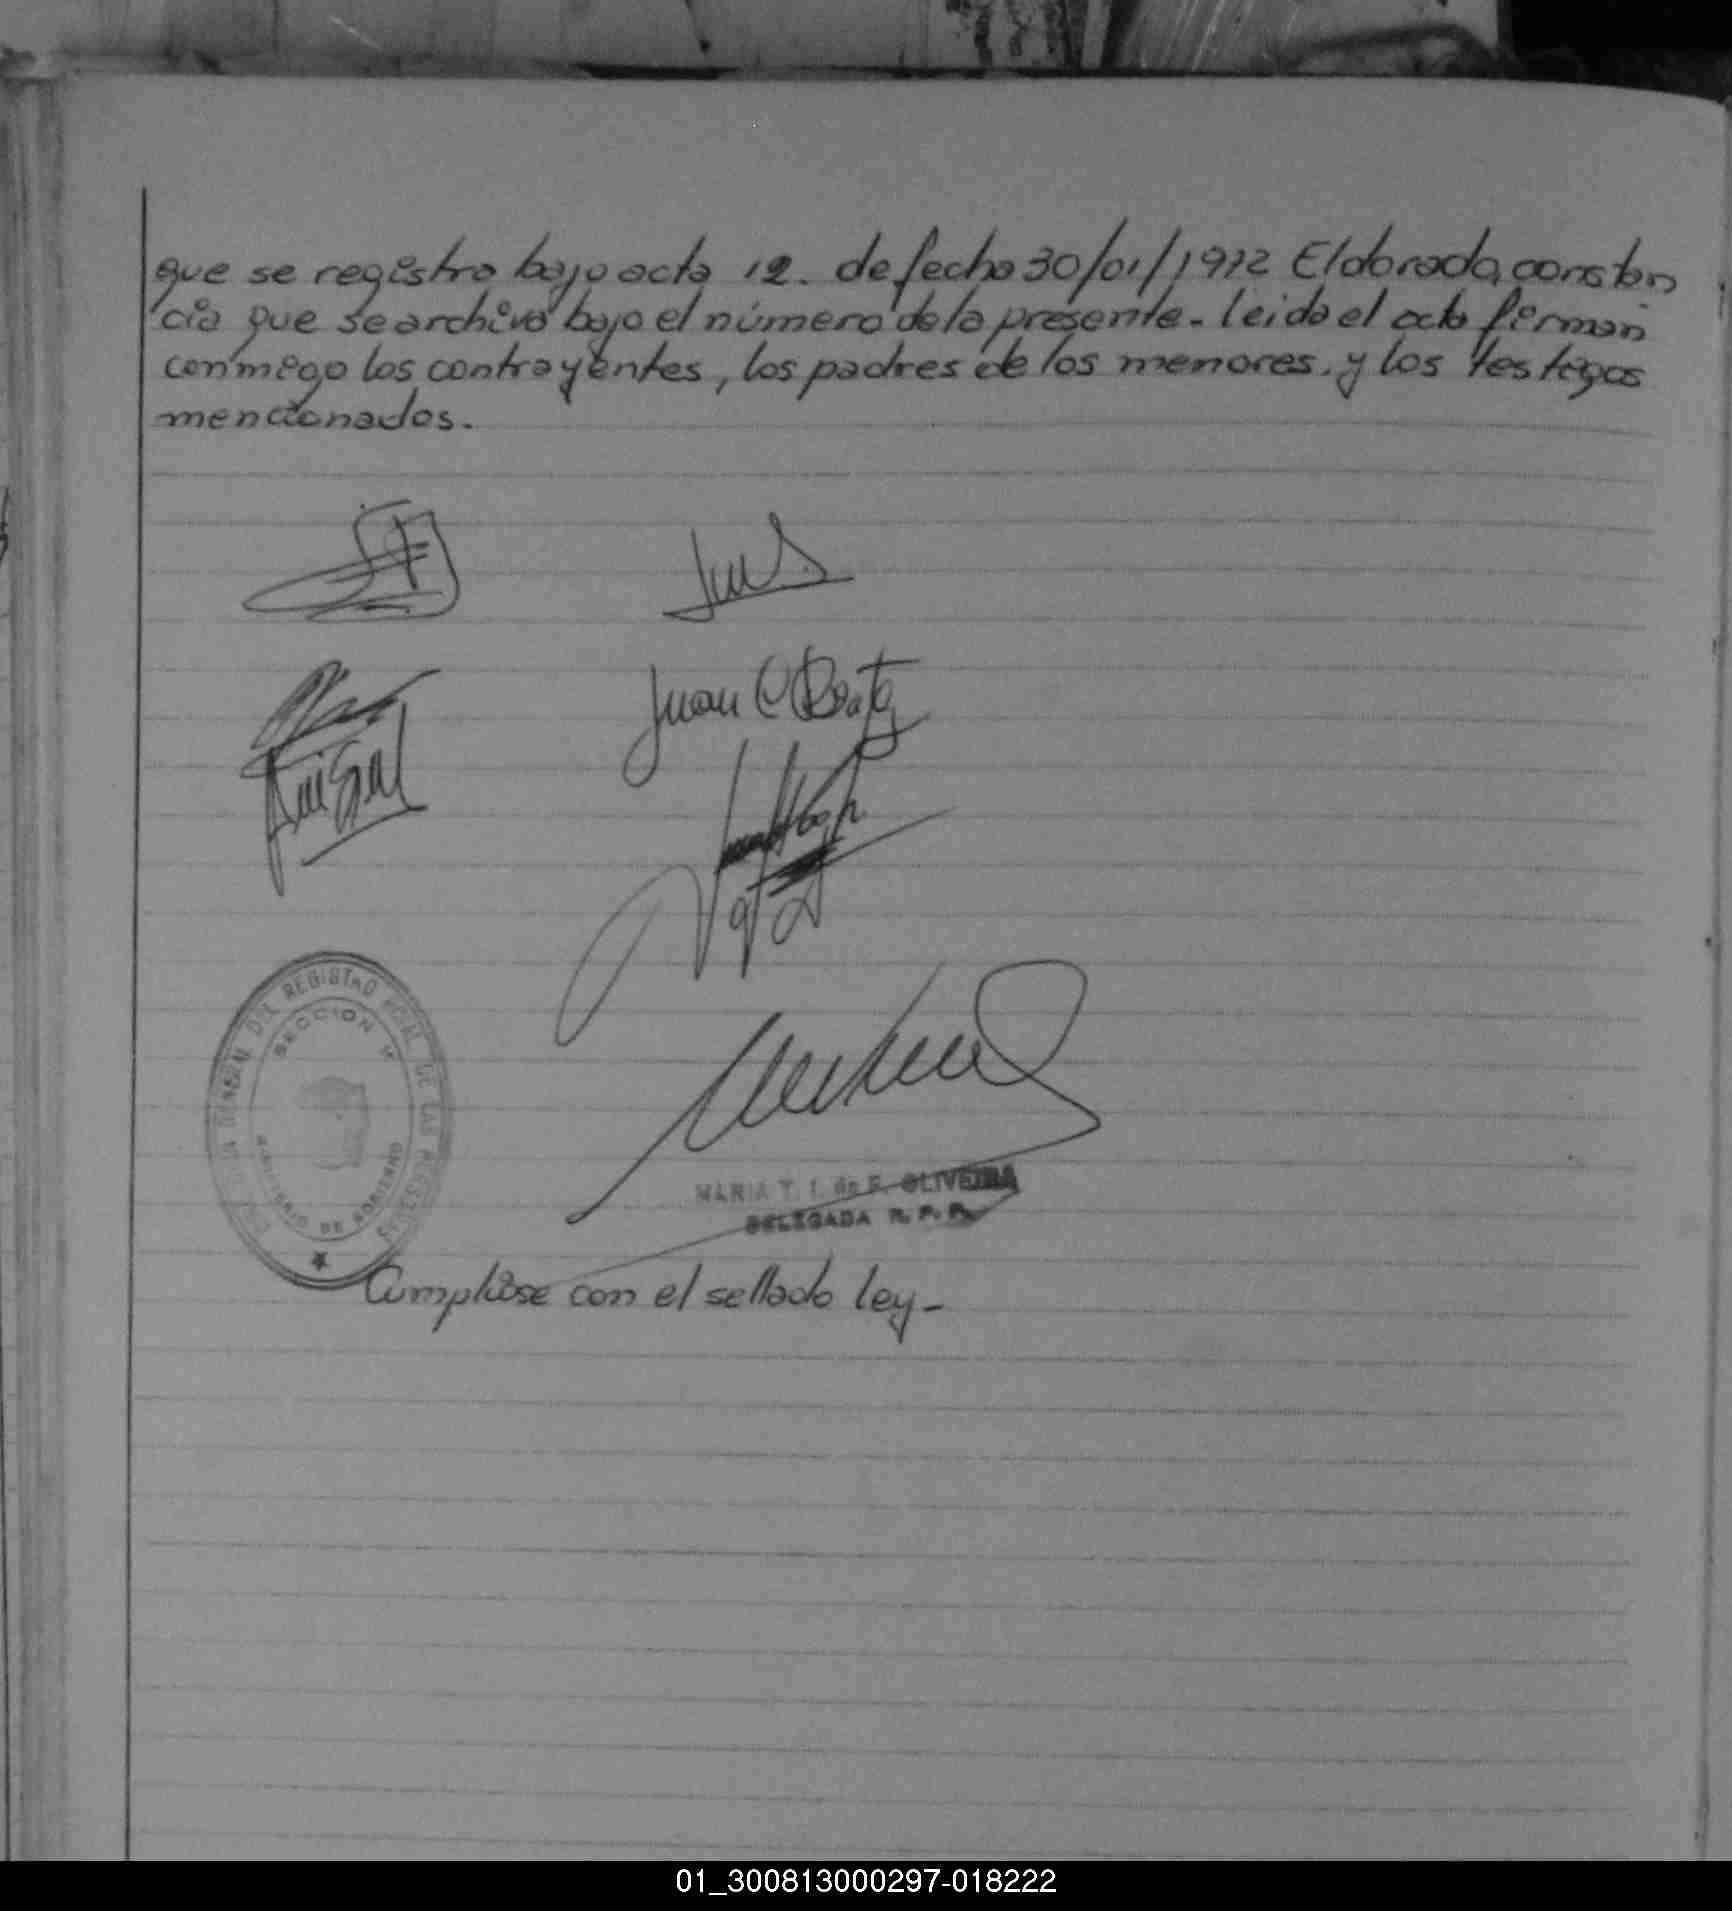 que se registro bajo acta 12. de fecha 30/01/1972 Eldorado, constan
cia que se archiva bajo el número de la presente - leida el acta firman
conmigo los contrayentes, los padres de los menores, y los testigos
mencionados.
Juan C
REGISTRO
DE LAS PERSONAS
SECCION 1ª
MINISTERIO DE GOBIERNO
MARIA T. I. de F. OLIVEIRA
DELEGADA R. P. P.
Cumpliose con el sellado ley -
01_300813000297-018222